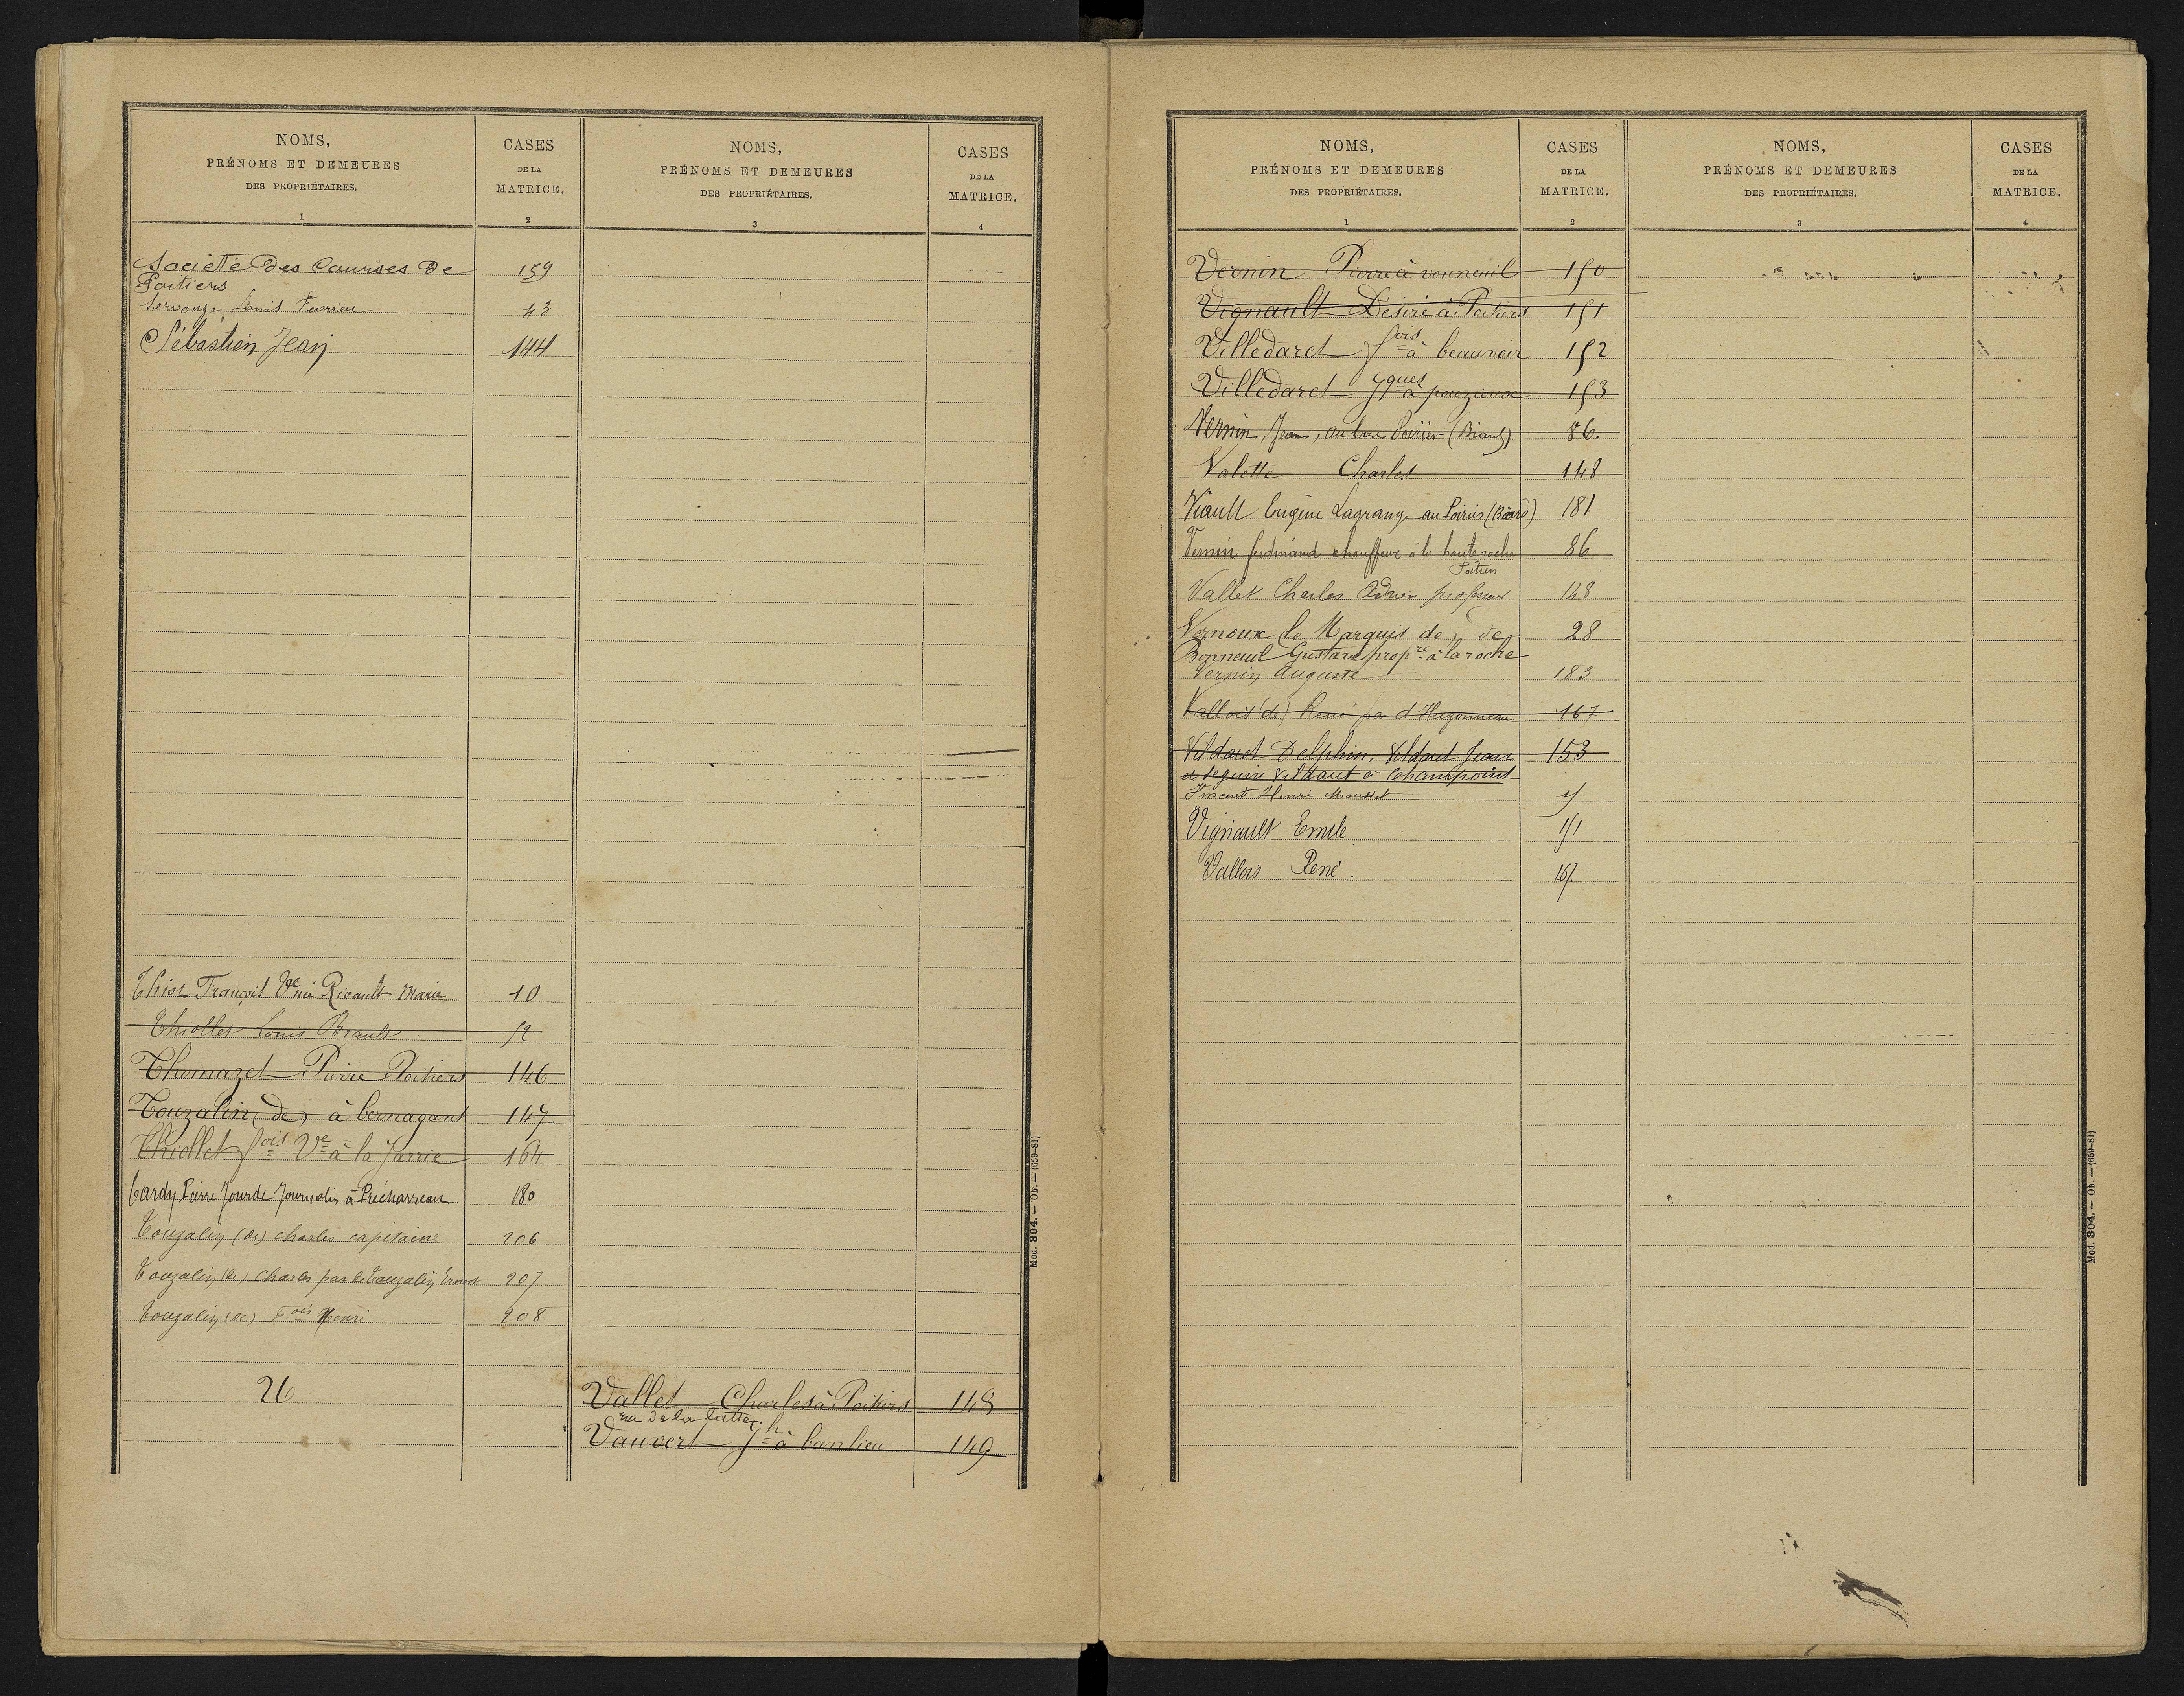 NOMS,
PRÉNOMS ET DEMEURES
DES PROPRIÉTAIRES.
1
CASES
DE LA
MATRICE.
2
NOMS,
PRÉNOMS ET DEMEURES
DES PROPRIÉTAIRES.
3
CASES
DE LA
MATRICE.
4
Société Des Courses De 159
Poitiers
Louis 43
Sébastien Jean 144
François Vve née Ricault Marie 10
Thiollet Louis Brault 52
Thomazet Pierre Poitiers 146
Touzalin (de) à bernagant 147
Thiollet fois Ve à la Jarrie 164
Tardy Pierre Jourde Journalier à Précharreau 180
Touzalin (de) charles capitaine 206
Touzalin (de) Charles par de Touzalin Ernest 207
Touzalin (de) Fois Henri 208
26
Vallet Charles à Poitiers 148
rue de la latte
Vauvert Jh à banlieu 149
Mod. 304. — Ob. — (659-81)
NOMS,
PRÉNOMS ET DEMEURES
DES PROPRIÉTAIRES.
1
CASES
DE LA
MATRICE.
2
NOMS,
PRÉNOMS ET DEMEURES
DES PROPRIÉTAIRES.
3
CASES
DE LA
MATRICE.
4
Vernin Pierre à vouneuil 150
Vignault Désiré à Poitiers 151
Villedaret fois à beauvoir 152
Villedaret Jques à pouzioux 153
Vernin, Jean, au Poirier (Biard) 86.
Valette Charles 148
Viault Eugène Lagrange au Poirier (Biard) 181
Vernin ferdinand chauffeur à la haute roche 86
Poitiers
Vallet Charles Adrien professeur 148
Vernoux (le Marquis de) de 28
Bonneuil Gustave propre à la roche
Vernin Auguste 183
Vallois (de) René par d'Hugonneau 167
Vildaret Delphin, Vildaret Jean 153
et Seguin Vildaret à Champoint
Vincent Henri
Vignault Emile 151
Vallois René. 167.
Mod. 304. — Ob. — (659-81)